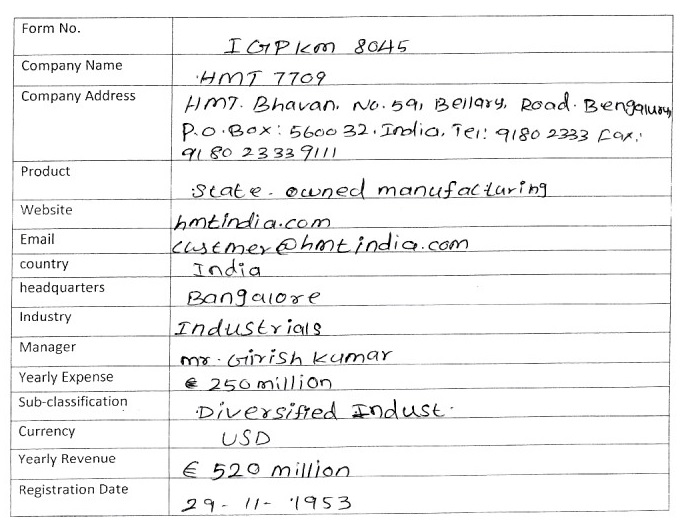 Form No.
IGPKM 8045
Company Name
HMT 7709
Company Address
HMT. Bhavan. No. 59, Bellary, Road. Bengalury
P.O.Box: 5600 32. India. Tel: 9180 2333 Fax:
91 80 23339111
Product
State-owned manufacturing
Website
hmtindia.com
Email
custmer@hmtindia.com
country
India
headquarters
Bangalore
Industry
Industrials
Manager
mr. Girish kumar
Yearly Expense
€ 250 million
Sub-classification
Diversified Indust.
Currency
USD
Yearly Revenue
€ 520 million
Registration Date
29-11-1953